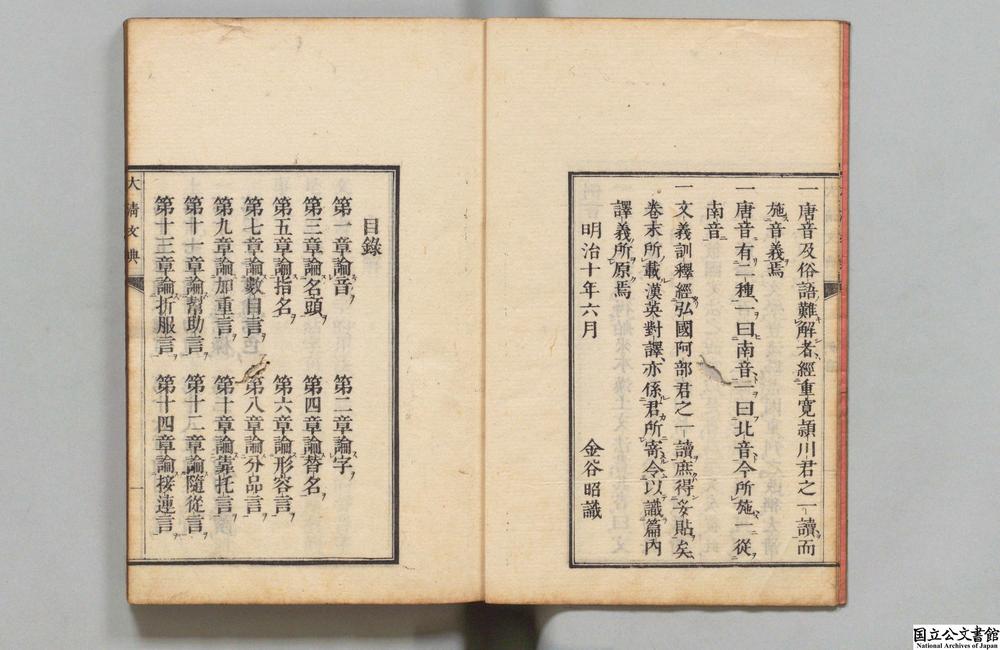 一唐音及俗語難解者經重寬潁川君之一讀而
施音義焉
一唐音有二種一曰南音二曰北音今所施一從
南音
一文義訓釋經弘國阿部君之一讀庶得妥貼矣
卷末所載漢英對譯亦係君所寄令以識篇內
譯義所原焉
明治十年六月 金谷昭識
目錄
第一章論音 第二章論字
第三章論名頭 第四章論替名
第五章論指名 第六章論形容言
第七章論數目言 第八章論分品言
第九章論加重言 第十章論靠托言
第十一章論幫助言 第十二章論隨從言
第十三章論折服言 第十四章論接連言
大清文典 一
国立公文書館
National Archives of Japan